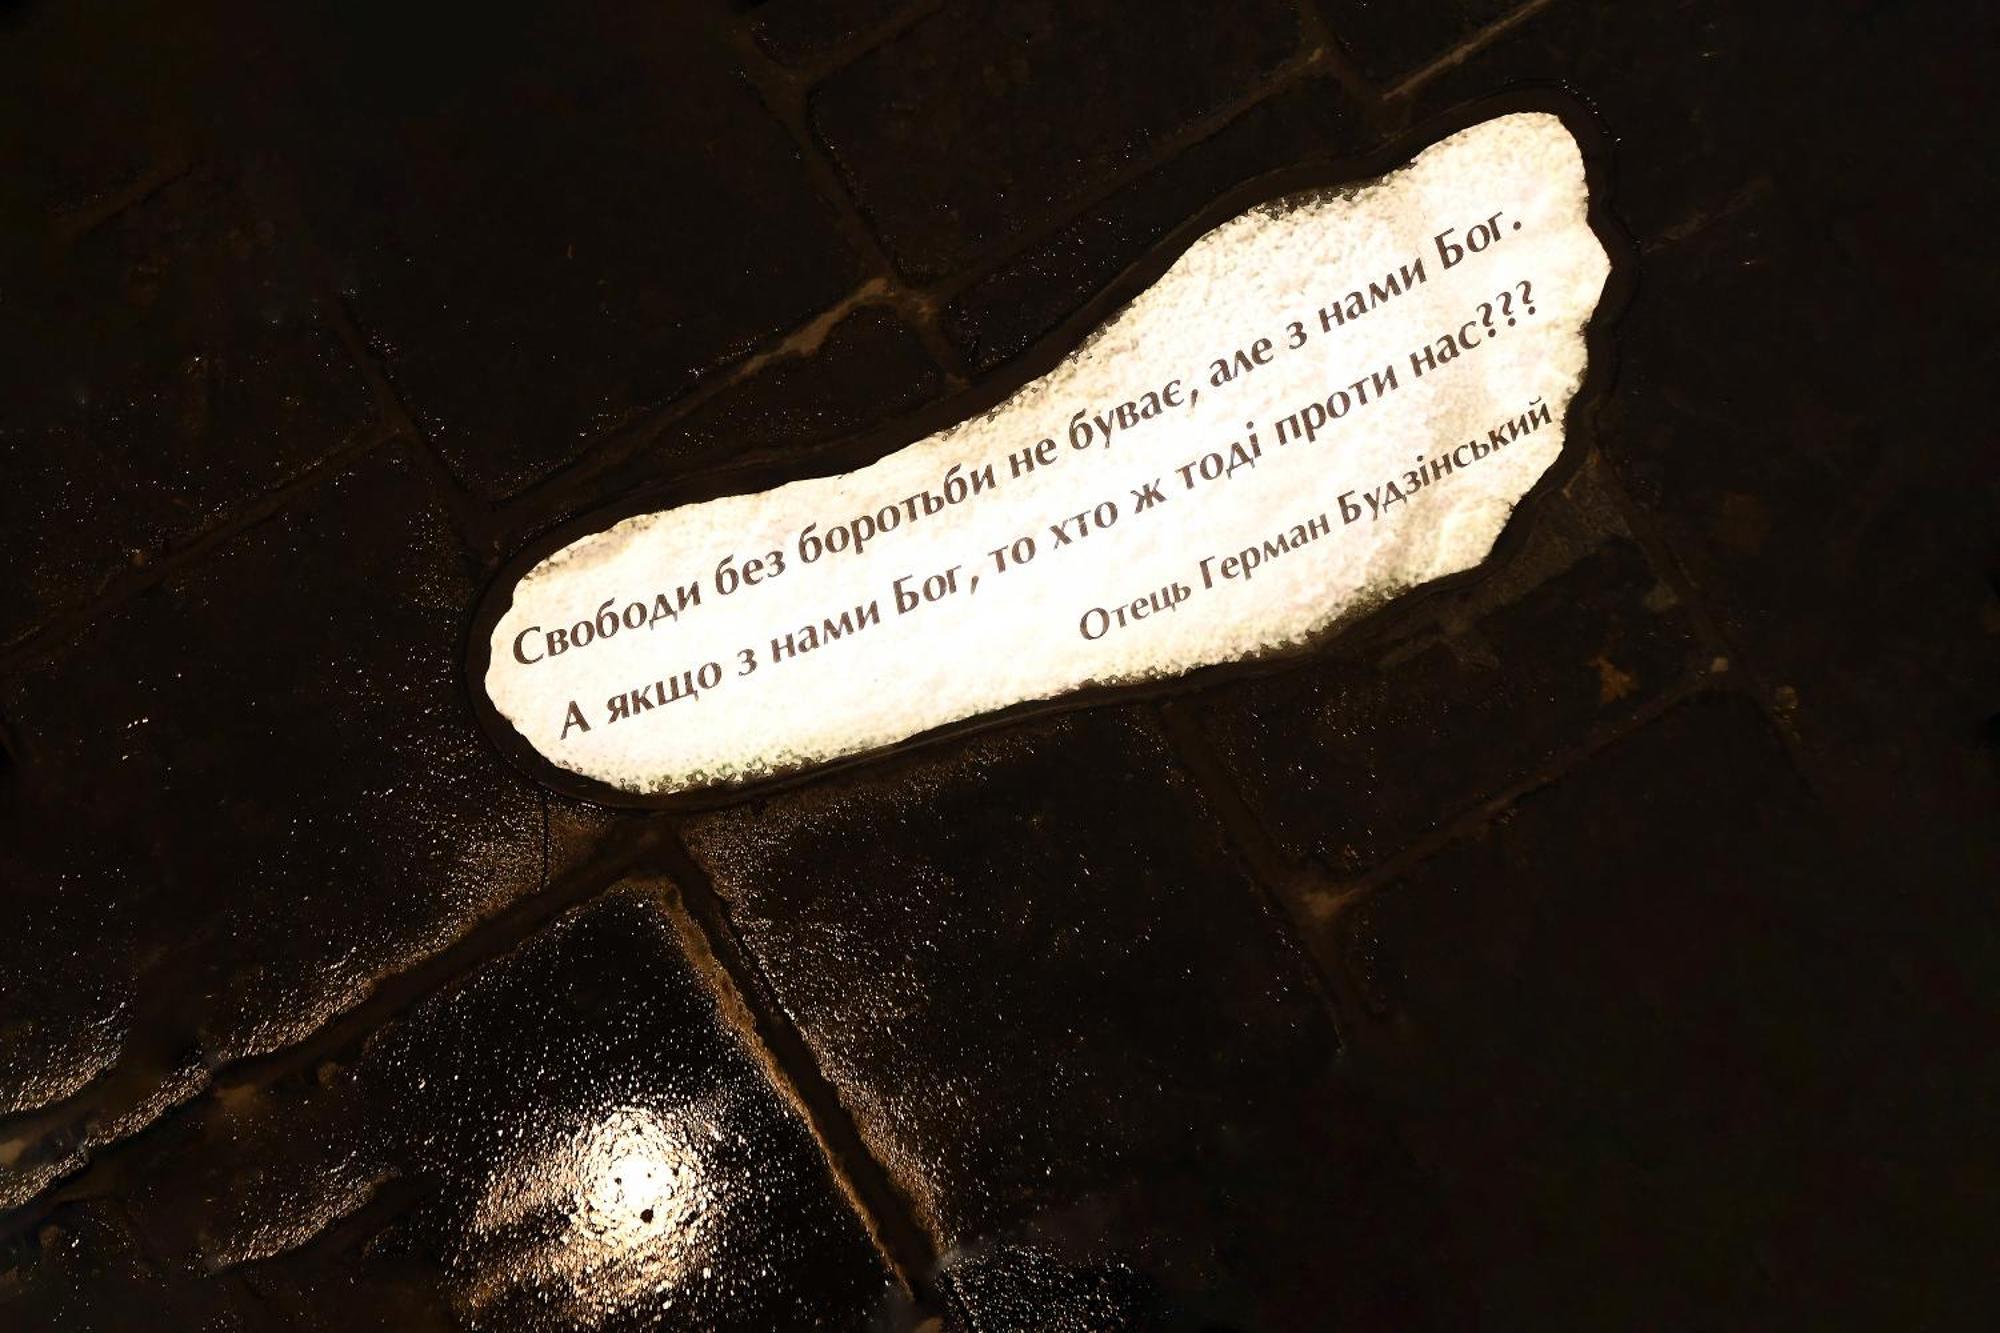 Свободи без боротьби не буває, але з нами Бог.
А якщо з нами Бог, то хто ж тоді проти нас???
Отець Герман Будзінський